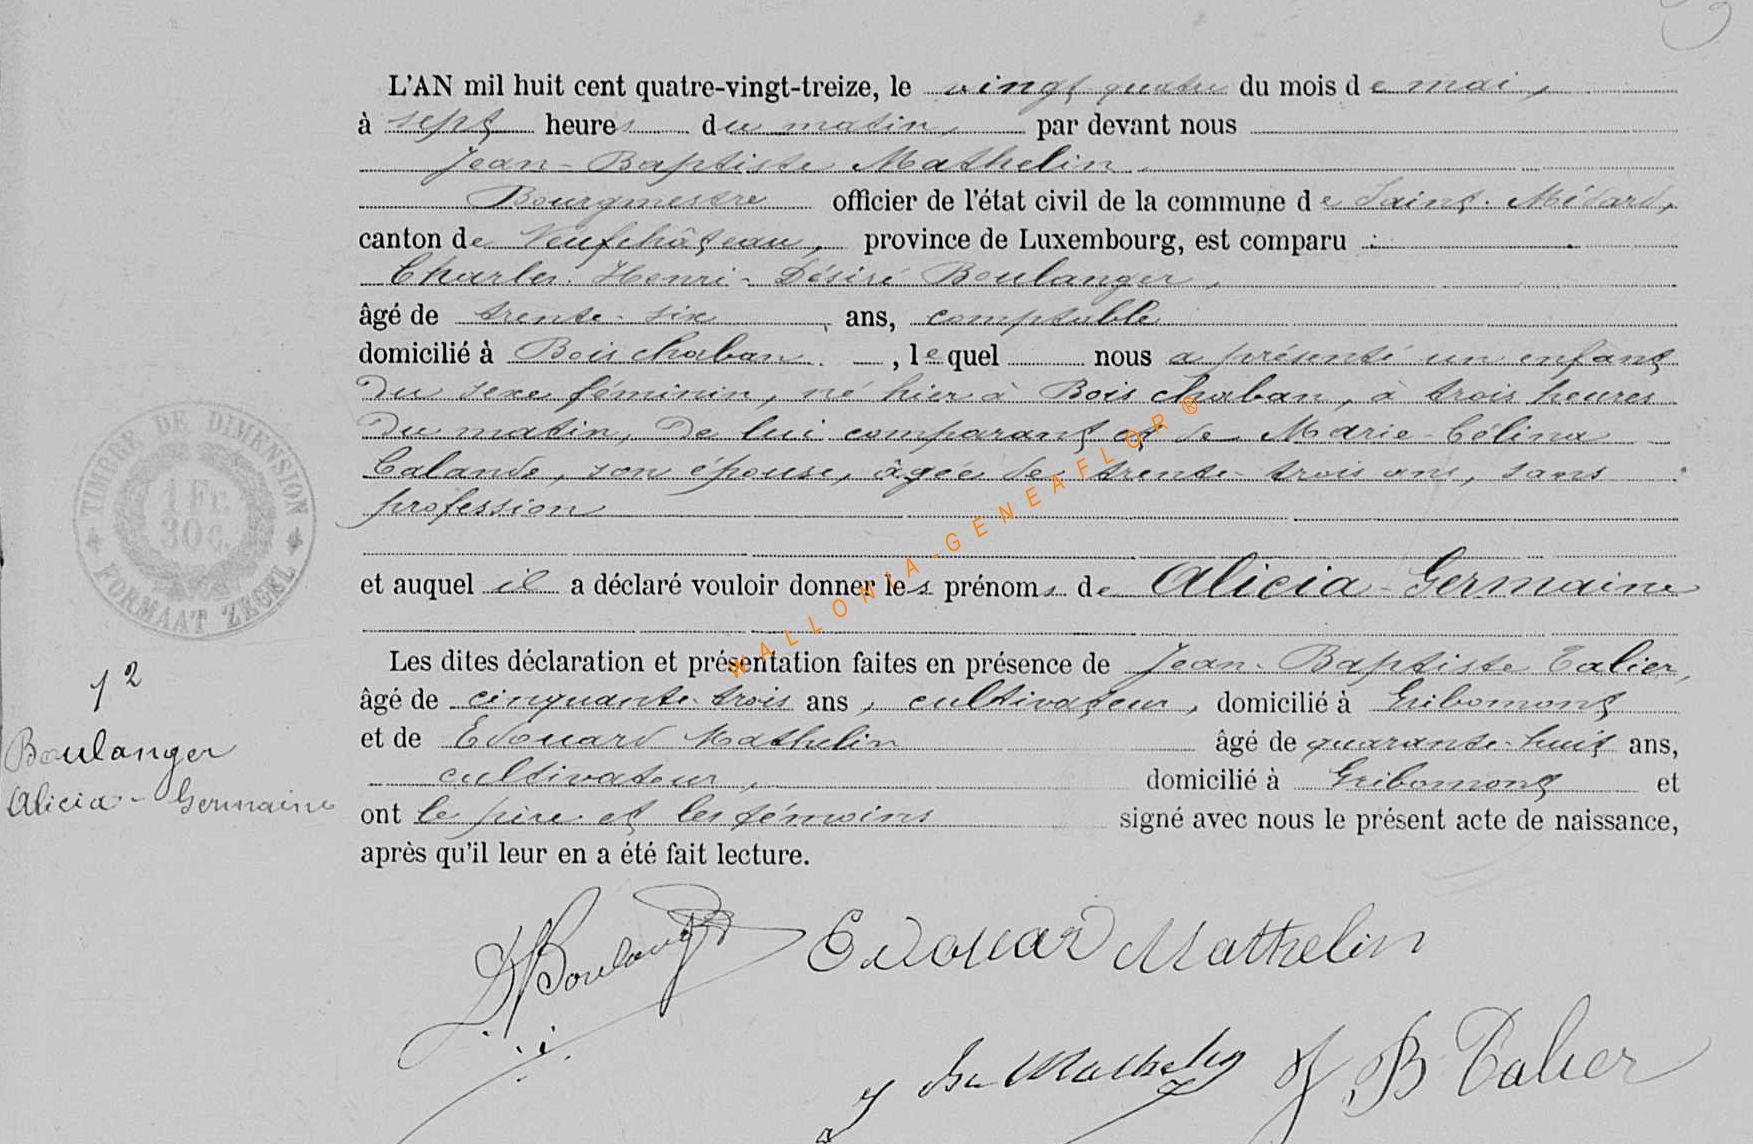 L'AN mil huit cent quatre-vingt-treize, le vingt quatre du mois de mai,
à sept heures du matin, par devant nous
Jean-Baptiste Mathelin
Bourgmestre officier de l'état civil de la commune de Saint-Médard,
canton de Neufchâteau, province de Luxembourg, est comparu :
Charles-Henri-Désiré Boulanger,
âgé de trente-six ans, comptable
domicilié à Bois chaban. —, lequel nous a présenté un enfant
du sexe féminin, né hier à Bois chaban, à trois heures
du matin, de lui comparant et de Marie-Célina
Calande, son épouse, âgée de trente-trois ans, sans
profession
et auquel il a déclaré vouloir donner les prénoms de Alicia-Germaine
Les dites déclaration et présentation faites en présence de Jean-Baptiste Talier,
âgé de cinquante-trois ans, cultivateur, domicilié à Gribomont
et de Edouard Mathelin âgé de quarante-huit ans,
cultivateur, domicilié à Gribomont et
ont le père et les témoins signé avec nous le présent acte de naissance,
après qu'il leur en a été fait lecture.
TIMBRE DE DIMENSION
1 Fr.
30 C.
FORMAAT ZEGEL
12
Boulanger
Alicia-Germaine
WALLONIA-GENEAFLOR®
Boulanger
Edouard Mathelin
J Bte Mathelin
J B Talier